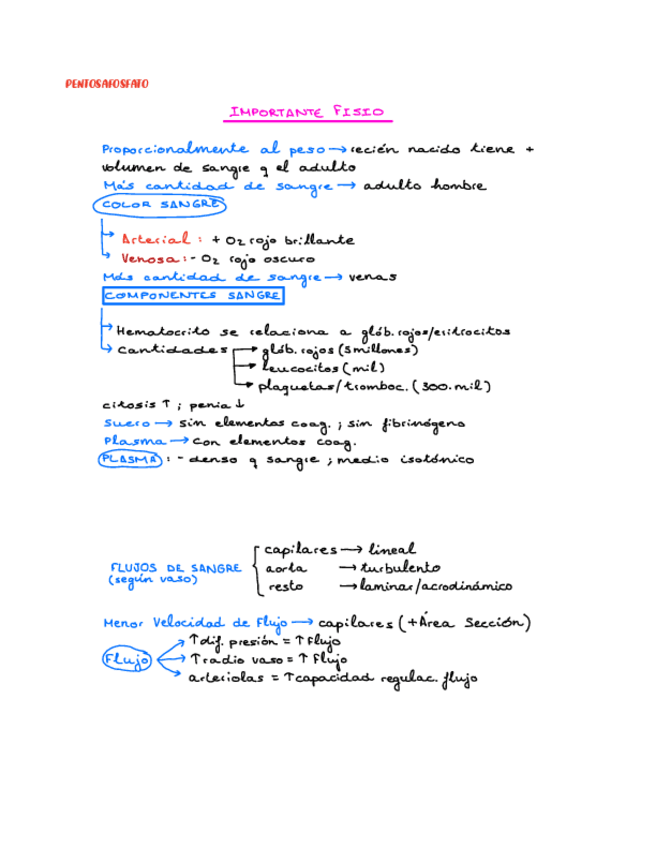 PENTOSAFOSFATO
IMPORTANTE FISIO
Proporcionalmente al peso → recién nacido tiene +
volumen de sangre q el adulto
Más cantidad de sangre → adulto hombre
COLOR SANGRE
Arterial : + O2 rojo brillante
Venosa : - O2 rojo oscuro
Más cantidad de sangre → venas
COMPONENTES SANGRE
Hematocrito se relaciona a glób. rojos/eritrocitos
Cantidades → glób. rojos (5 millones)
→ leucocitos (mil)
→ plaquetas/tromboc. (300.mil)
citosis ↑ ; penia ↓
Suero → sin elementos coag. ; sin fibrinógeno
Plasma → con elementos coag.
PLASMA : - denso q sangre ; medio isotónico
capilares → lineal
FLUJOS DE SANGRE aorta → turbulento
(según vaso) resto → laminar/acrodinámico
Menor Velocidad de Flujo → capilares (+Área Sección)
↑ dif. presión = ↑ Flujo
Flujo → ↑ radio vaso = ↑ Flujo
arteriolas = ↑ capacidad regulac. flujo